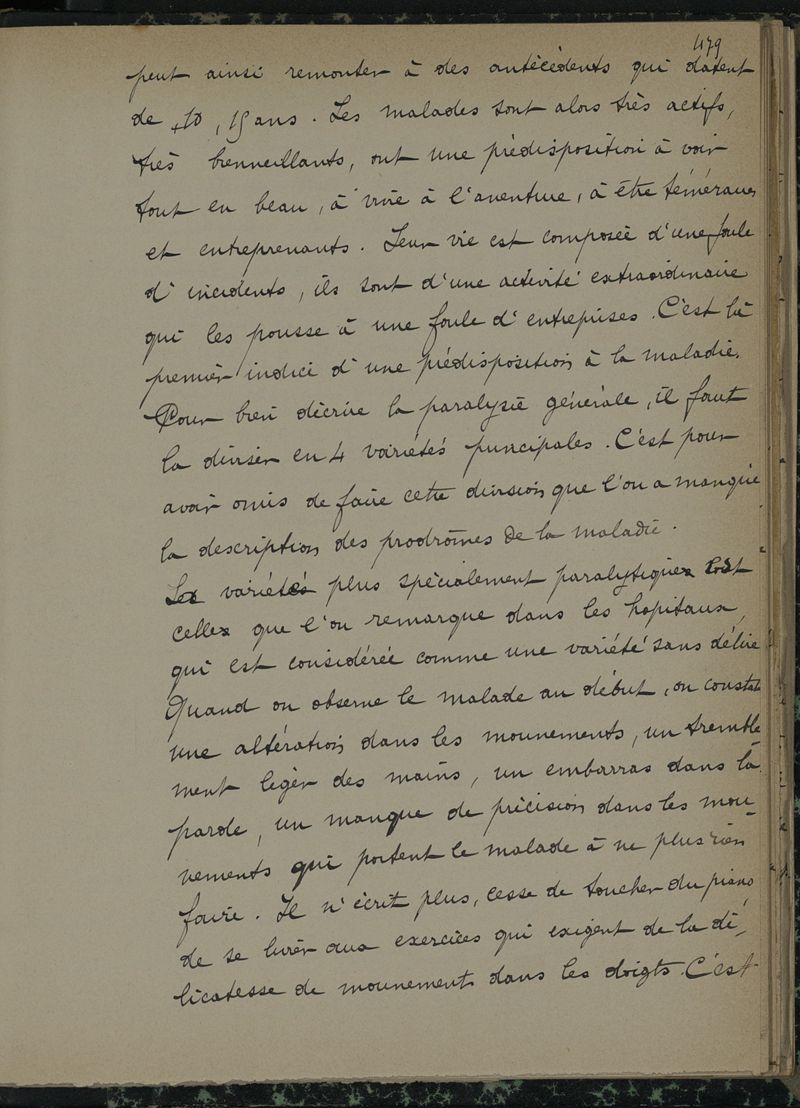 479
peut ainsi remonter à des antécédents qui datent
de 10, 15 ans. Les malades sont alors très actifs,
très bienveillants, ont une prédisposition à voir
tout en beau, à vivre à l'aventure, à être téméraires
et entreprenants. Leur vie est composée d'une foule
d'incidents, ils sont d'une activité extraordinaire
qui les pousse à une foule d'entreprises. C'est là
premier indice d'une prédisposition à la maladie.
Pour bien décrire la paralysie générale, il faut
la diviser en 4 variétés principales. C'est pour
avoir omis de faire cette division que l'on a manqué
la description des prodrômes de la maladie.
La variété plus spécialement paralytique est
celle que l'on remarque dans les hopitaux,
qui est considérée comme une variété sans délire
Quand on observe le malade au début, on constate
une altération dans les mouvements, un tremble-
ment léger des mains, un embarras dans la
parole, un manque de précision dans les mou-
vements qui portent le malade à ne plus rien
faire. Il n'écrit plus, cesse de toucher du piano,
de se livrer aux exercices qui exigent de la dé-
licatesse de mouvements dans les doigts. C'est